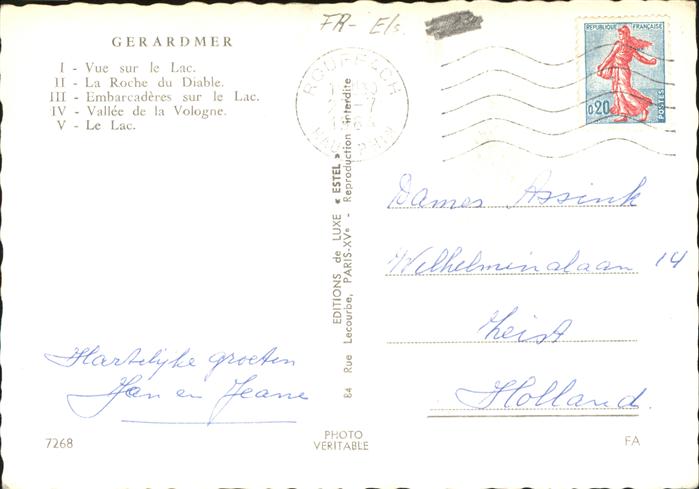 FR- Els.
GERARDMER
I - Vue sur le Lac.
II - La Roche du Diable.
III - Embarcadères sur le Lac.
IV - Vallée de la Vologne.
V - Le Lac.
ROUFFACH
HAUT-RHIN
REPUBLIQUE FRANÇAISE
0,20
POSTES
EDITIONS de LUXE « ESTEL »
84 Rue Lecourbe, PARIS-XVe - Reproduction interdite
Dames Assink
Wilhelminalaan 14
Zeist
Holland.
Hartelijke groeten
Jan en Jeane
7268
PHOTO
VERITABLE
FA